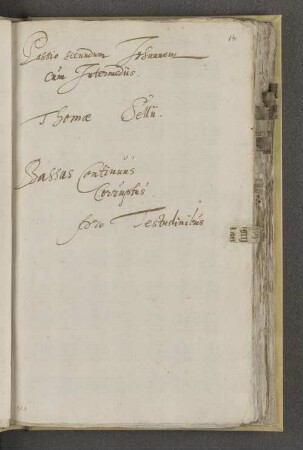 14
Passio secundum Johannem
cum Intermediis.
Thomæ Sellii.
Bassus Continuus
Corruptus
pro Testudinibus